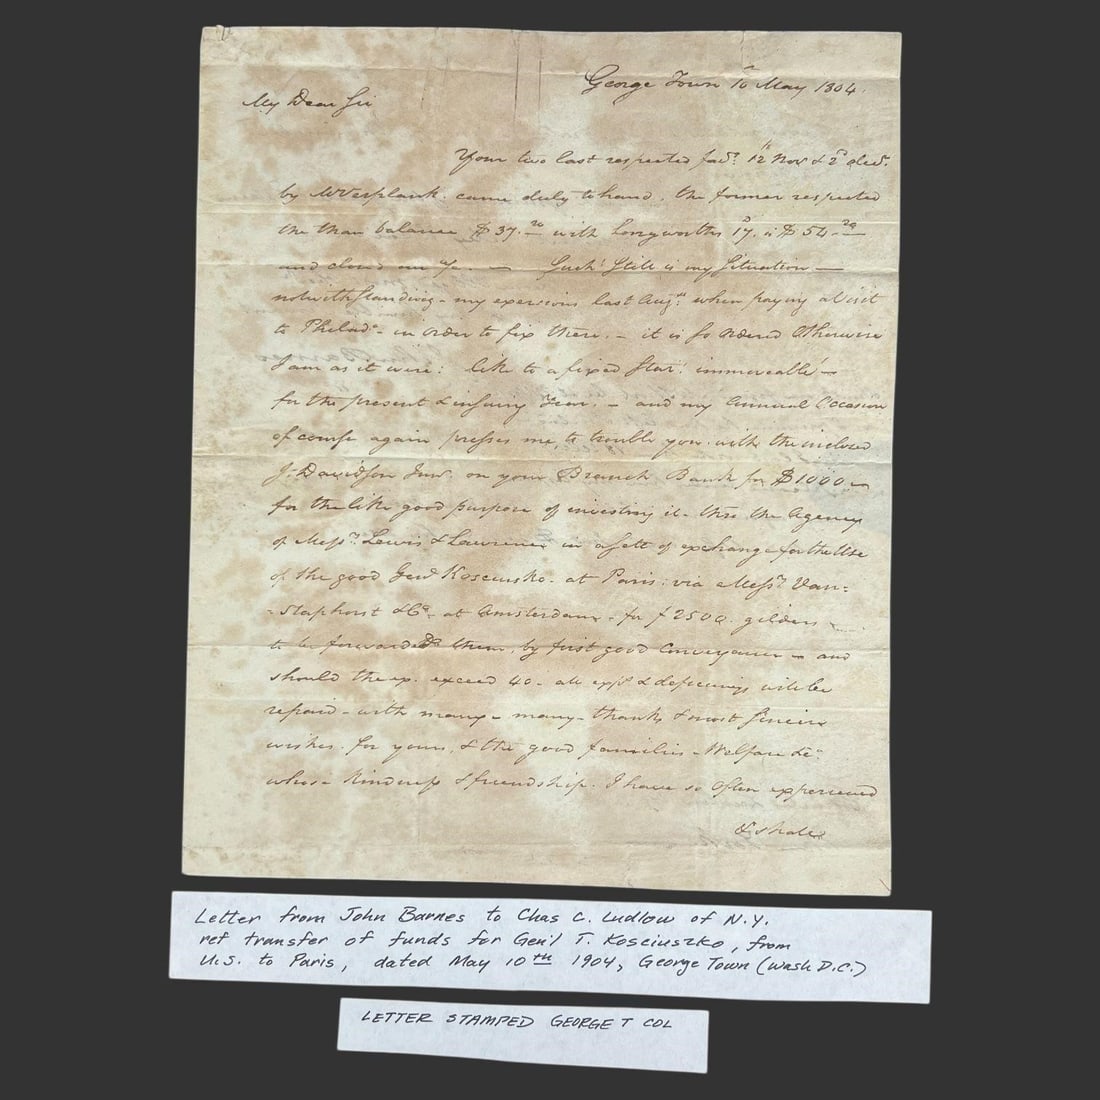 George Town 10th May 1804.
My Dear Sir
Your two last respected favrs. 12th Novr & 2d decr.
by Mr Verplank. came duly to hand. the former respected
the then balance $37.20 with Longworths pd. is $54.20
and closed our a/c. — Such: Still is my Situation —
notwithstanding — my exersions last Augt. when paying a Visit
to Philada — in order to fix there. — it is so ordered Otherwise
I am as it were: like to a fixed Star: immoveable! —
for the present & insuing Year. — and my Annual Occasion
of course again presses me to trouble you with the inclosed
J. Davidson Junr. on your Branch Bank for $1000 —
for the like good purpose of investing it — thro the Agency
of Messrs. Lewis & Lawrence in a sett of exchange for the Use
of the good Genl Kosciusko — at Paris: via Messrs. Van=
=Staphorst & Co. at Amsterdam — for f2500. gilders
to be forwarded them. by first good Conveyance — and
should the ex. exceed 40 — all exps & deficiencys will be
repaid — with many — many — thanks & most sincere
wishes. for yours, & the good families — Welfare &c.
whose kindness & friendship. I have so often experienced
& shall
Letter from John Barnes to Chas C. Ludlow of N.Y.
ref transfer of funds for Gen'l T. Kosciuszko, from
U.S. to Paris, dated May 10th 1904, George Town (Wash D.C.)
LETTER STAMPED GEORGE T COL